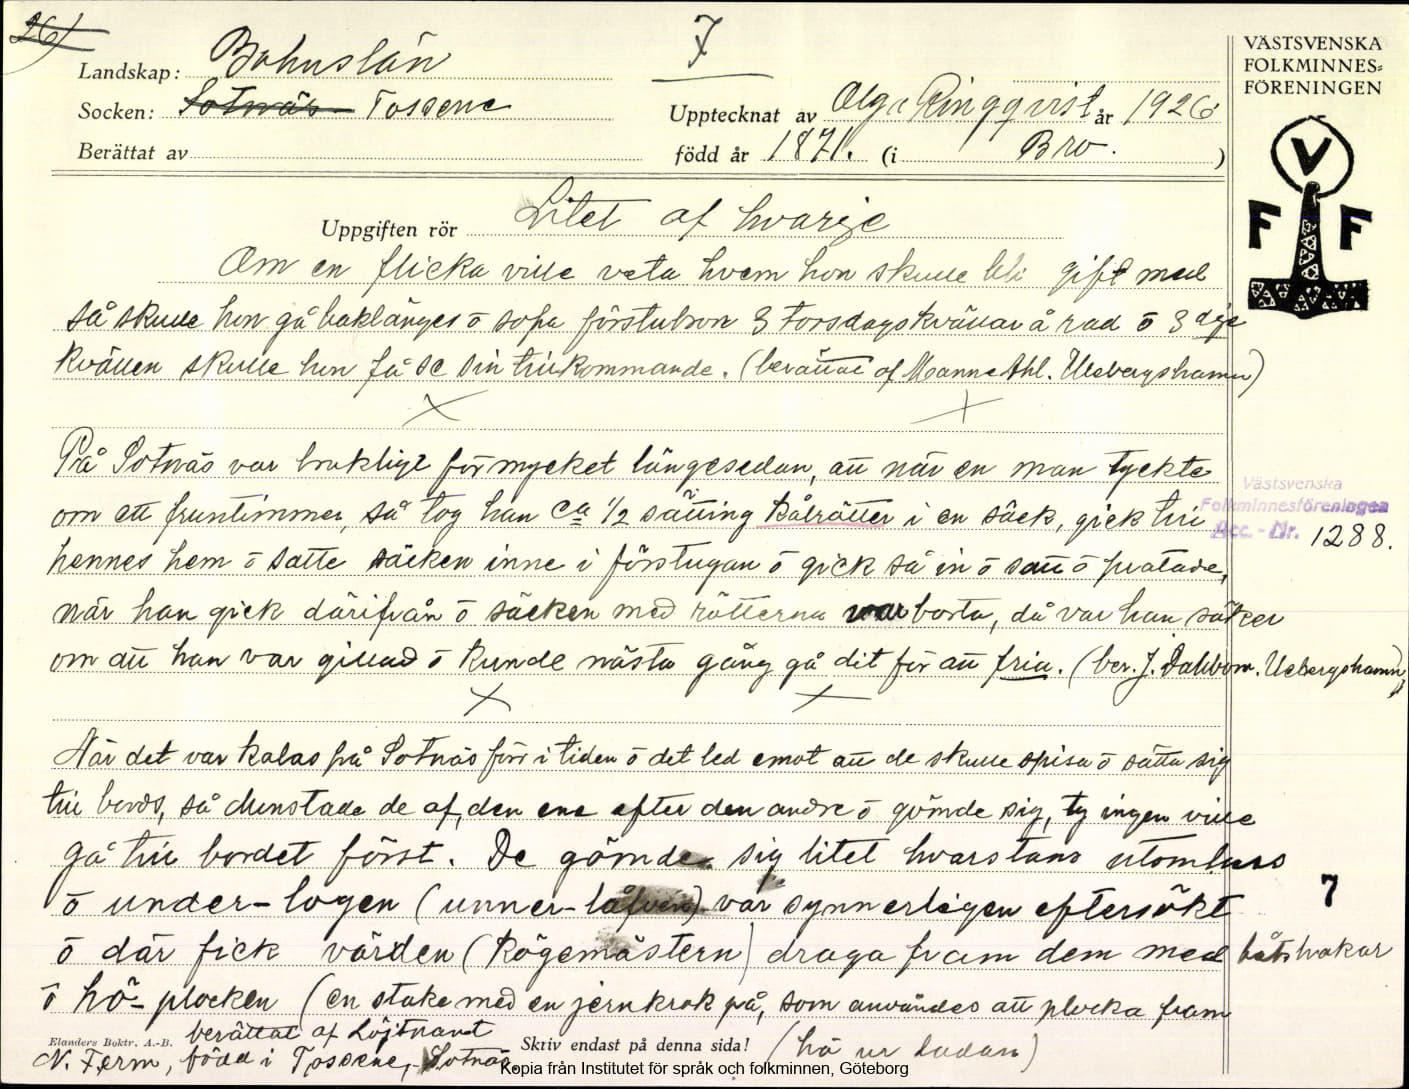 26)
7
VÄSTSVENSKA
FOLKMINNES=
FÖRENINGEN
V
F F
Landskap: Bohuslän
Socken: Sotnäs Tossene
Upptecknat av Olga Ringqvist år 1926
Berättat av
född år 1871. (i Bro. )
Uppgiften rör Litet af hvarje
Om en flicka ville veta hvem hon skulle bli gift med
så skulle hon gå baklänges ō sopa förstubron 3 torsdagskvällar å rad ō 3 dje
kvällen skulle hon få se sin tillkommande. (berättat af Manne Ahl. Ulebergshamn)
På Sotnäs var brukligt för mycket längesedan, att när en man tyckte
om ett fruntimmer, så tog han ca 1/2 sätting kålrätter i en säck, gick till
hennes hem ō satte säcken inne i förstugan ō gick så in ō satt ō pratade,
när han gick därifrån ō säcken med rötterna var borta, då var han säker
om att han var gillad ō kunde nästa gång gå dit för att fria. (ber. J. Dahlbom. Ulebergshamn)
Västsvenska
Folkminnesföreningen
Acc. - Nr. 1288.
När det var kalas på Sotnäs förr i tiden ō det led emot att de skulle spisa ō sätta sig
till bords, så dunstade de af, den ene efter den andre ō gömde sig, ty ingen ville
gå till bordet först. De gömde sig litet hvarstans utomhus
ō under-logen (unner-låfven) var synnerligen eftersökt
7
ō där fick värden (kögemästern) draga fram dem med båtshakar
ō hö-plocken (en stake med en jernkrok på, som användes att plocka fram
(hö ur ladan)
berättat af Löjtnant
N. Ferm, född i Tossene, Sotnäs.
Elanders Boktr. A.-B.
Skriv endast på denna sida!
Kopia från Institutet för språk och folkminnen, Göteborg